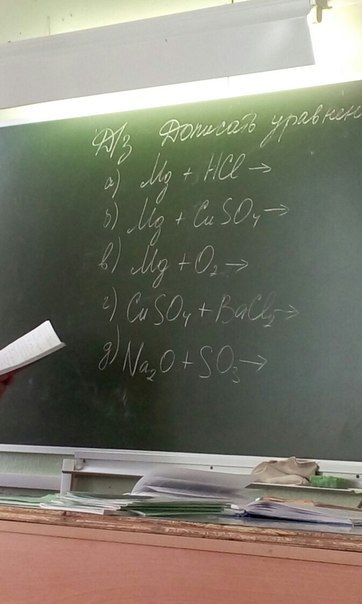 Д/з Дописать уравнен
а) Mg + HCl →
б) Mg + CuSO₄ →
в) Mg + O₂ →
г) CuSO₄ + BaCl₂ →
д) Na₂O + SO₃ →